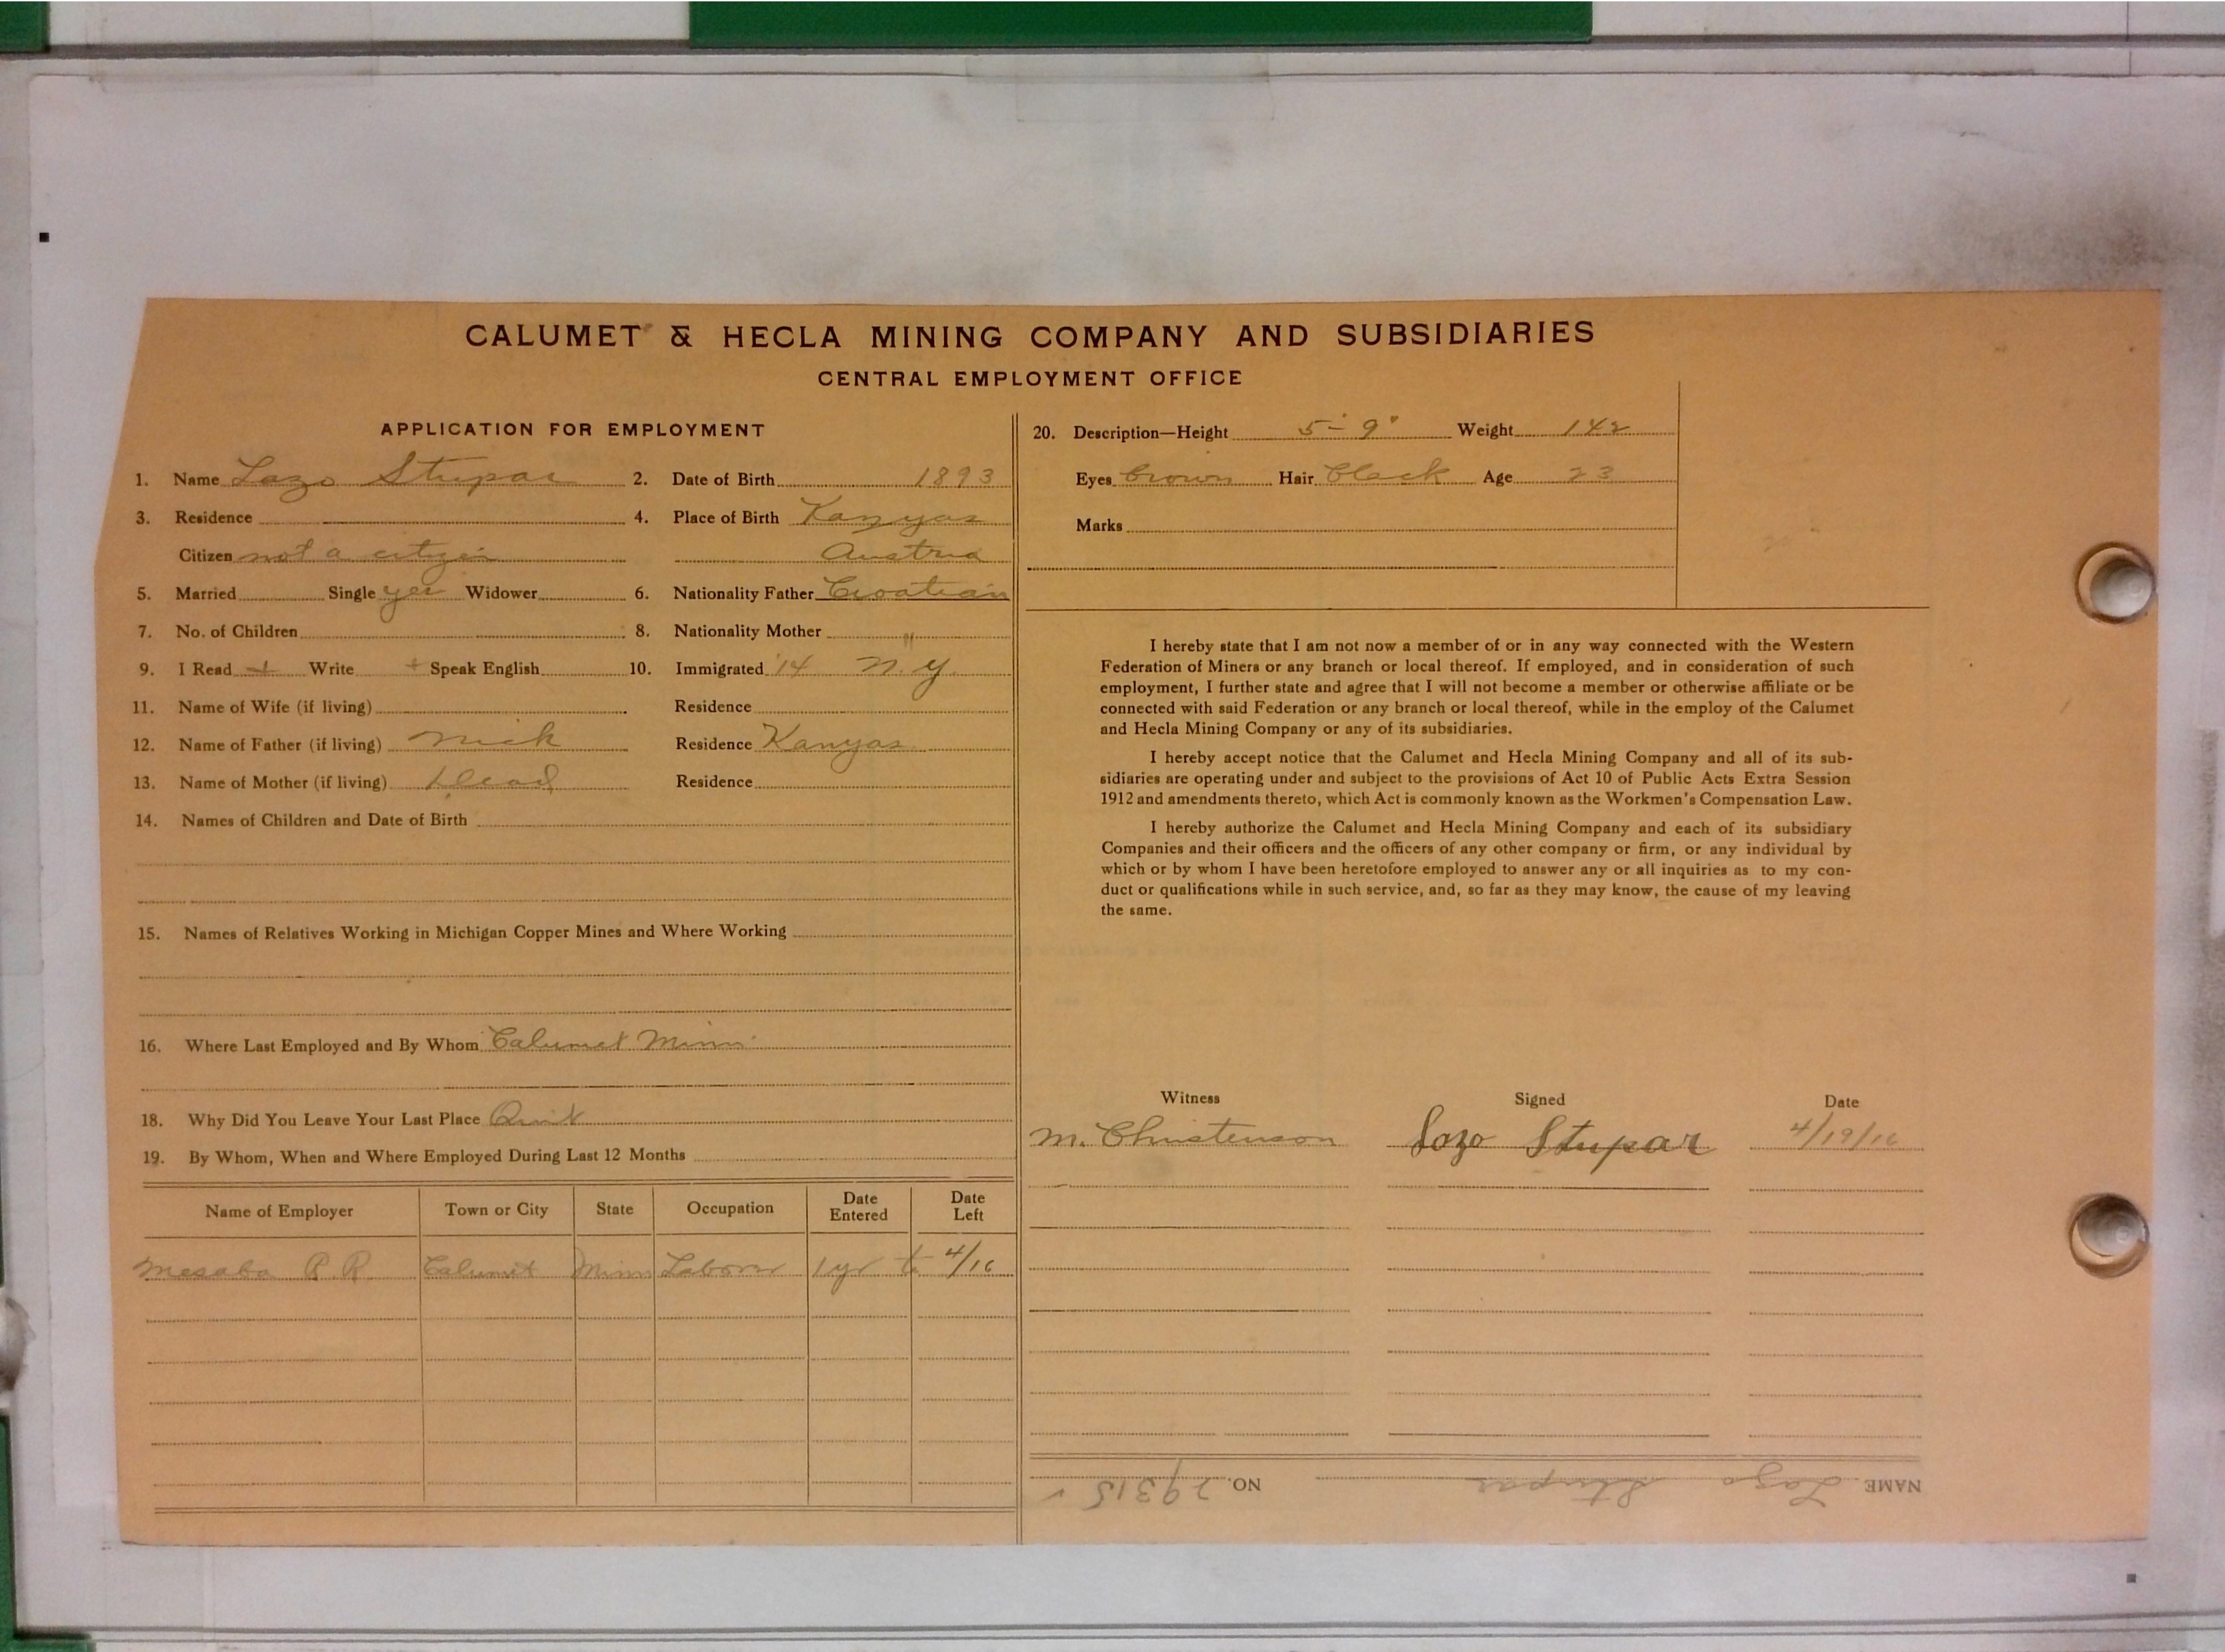 CALUMET & HECLA MINING COMPANY AND SUBSIDIARIES
CENTRAL EMPLOYMENT OFFICE
APPLICATION FOR EMPLOYMENT
1. Name Lazo Stupar 2. Date of Birth 1893
3. Residence 4. Place of Birth Kanyas
Citizen not a citizen Austria
5. Married Single yes Widower 6. Nationality Father Croatian
7. No. of Children 8. Nationality Mother "
9. I Read + Write + Speak English 10. Immigrated '14 N.Y.
11. Name of Wife (if living) Residence
12. Name of Father (if living) Nick Residence Kanyas
13. Name of Mother (if living) Dead Residence
14. Names of Children and Date of Birth
15. Names of Relatives Working in Michigan Copper Mines and Where Working
16. Where Last Employed and By Whom Calumet Minn.
18. Why Did You Leave Your Last Place Quit
19. By Whom, When and Where Employed During Last 12 Months
Name of Employer Town or City State Occupation Date Entered Date Left
Mesaba R.R. Calumet Minn Laborer 1 yr to 4/16
20. Description—Height 5'-9" Weight 142
Eyes brown Hair black Age 23
Marks
I hereby state that I am not now a member of or in any way connected with the Western
Federation of Miners or any branch or local thereof. If employed, and in consideration of such
employment, I further state and agree that I will not become a member or otherwise affiliate or be
connected with said Federation or any branch or local thereof, while in the employ of the Calumet
and Hecla Mining Company or any of its subsidiaries.
I hereby accept notice that the Calumet and Hecla Mining Company and all of its sub-
sidiaries are operating under and subject to the provisions of Act 10 of Public Acts Extra Session
1912 and amendments thereto, which Act is commonly known as the Workmen's Compensation Law.
I hereby authorize the Calumet and Hecla Mining Company and each of its subsidiary
Companies and their officers and the officers of any other company or firm, or any individual by
which or by whom I have been heretofore employed to answer any or all inquiries as to my con-
duct or qualifications while in such service, and, so far as they may know, the cause of my leaving
the same.
Witness Signed Date
M. Christenson Lozo Stupar 4/19/16
NAME Lazo Stupar NO. 29315